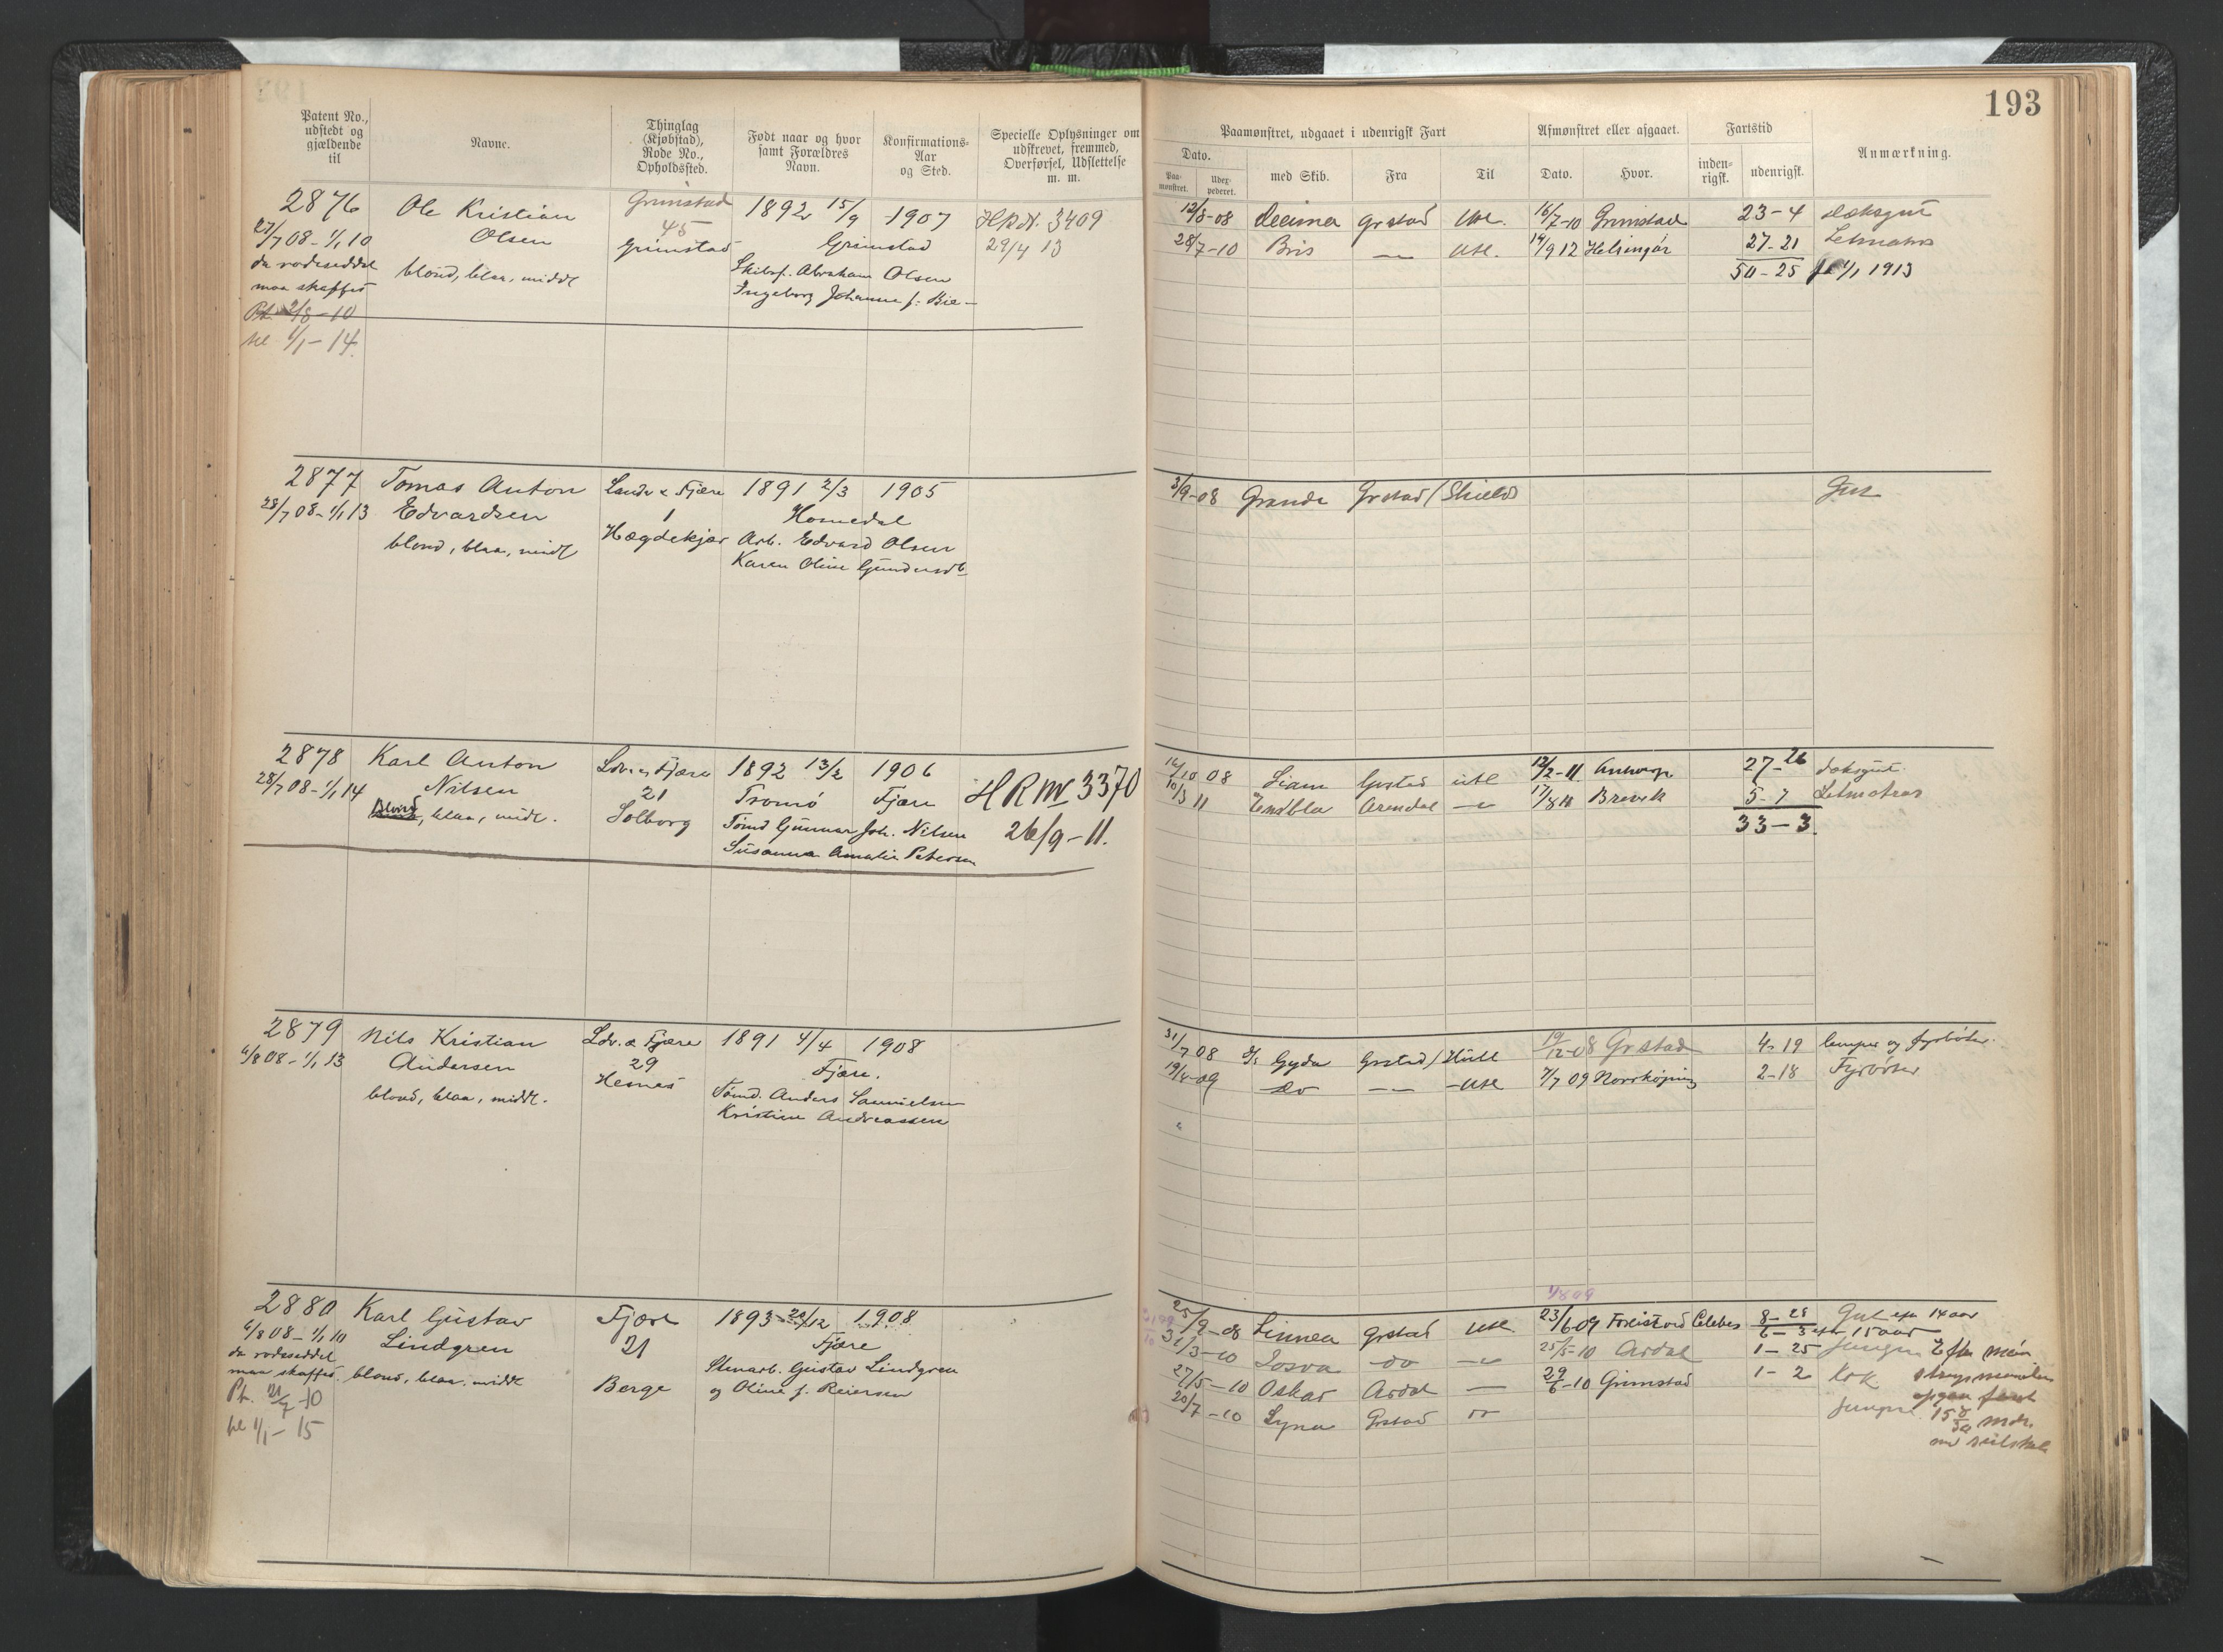 193
Patent No., udstedt og gjældende til
Navne.
Thinglag (Kjøbstad), Rode No., Opholdssted.
Født naar og hvor samt Forældres Navn.
Konfirmations-Aar og Sted.
Specielle Oplysninger om udskrevet, fremmed, Overførsel, Udslettelse m. m.
Paamønstret, udgaaet i udenrigsk Fart
Dato.
Paa-mønstret.
Udex-pederet.
med Skib.
Fra
Til
Afmønstret eller afgaaet.
Dato.
Hvor.
Fartstid
inden-rigsk.
udenrigsk.
Anmærkning.
2876 Ole Kristian Grimstad 1892 15/9 1907 HRN. 3409
27/7 08 - 1/1 10 Olsen 45 Grimstad 29/4 13
da rodeseddel blond, blaa, midd Grimstad Skibsf. Abraham Olsen
maa skaffes Ingeborg Johanne f. Bie
Pt. 2/8-10
til 1/1-14.
12/8-08 Decima Grstad Utl. 16/7-10 Grimstad 23-4 Dæksgut
28/7-10 Bris — Utl. 14/9 12 Helsingør 27-21 Letmatros
50-25 1/1 1913
2877 Tomas Anton Landv & Fjære 1891 2/3 1905
28/7 08 - 1/1 13 Edvardsen 1 Homedal
blond, blaa, midd Hægdekjær Arb. Edvard Olsen
Karen Oline Gundersdt
3/9-08 Grande Grstad / Shields Gut
2878 Karl Anton Ldv. & Fjære 1892 13/2 1906 HRN 3370
28/7 08 - 1/1 14 Nilsen 21 Tromø Fjære
Blond, blaa, midd. Solborg Tømd Gunnar Joh. Nilsen 26/9-11.
Susanna Amalie Petersen
14/10 08 Siam Grstad utl 12/2-11 Antwerp 27-26 dæksgut.
10/3 11 Arendal — 17/8 11 Brevik 5-7 Letmatros
33-3.
2879 Nils Kristian Ldv. & Fjære 1891 4/4 1908
4/8 08 - 1/1 13 Andersen 29 Fjære.
blond, blaa, midd. Hesnes Tømd. Anders Samuelsen
Kristine Andreassen
31/7 08 Gyda Grstad / Hull 19/12-08 Grstad 4-19 lemper og fyrbøter.
19/4-09 do — Utl 7/7 09 Norrkøping 2-18 Fyrbøter
2880 Karl Gustav Fjære 1893 20/12 1908
4/8 08 - 1/1 10 Lindgren 21 Fjære
da rodeseddel Stenarb. Gustav Lindgren
maa skaffes. blond, blaa, midd Berge og Oline f. Reiersen
Pt. 21/7-10
til 1/1-15
1/8 09
25/9-08 Linnea Grstad Utl 23/6 09 Celebes 8-28 Gut efter 14 aar
6-3 efter 15 aar
31/3-10 Josva do — 25/5-10 Ardal 1-25 Jungm
27/5-10 Oskar Ardal — 29/6-10 Grimstad 1-2 Kok
20/7-10 Syna Grstad